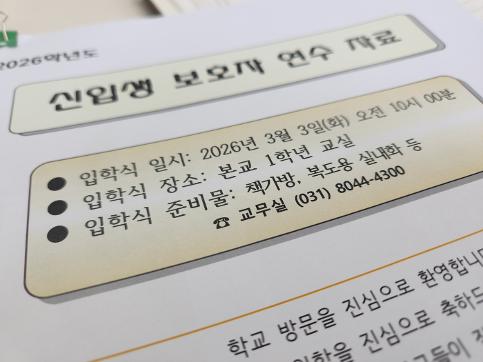 2026학년도
신입생 보호자 연수 자료
● 입학식 일시: 2026년 3월 3일(화) 오전 10시 00분
● 입학식 장소: 본교 1학년 교실
● 입학식 준비물: 책가방, 복도용 실내화 등
☎ 교무실 (031) 8044-4300
학교 방문을 진심으로 환영합니다
입학을 진심으로 축하드